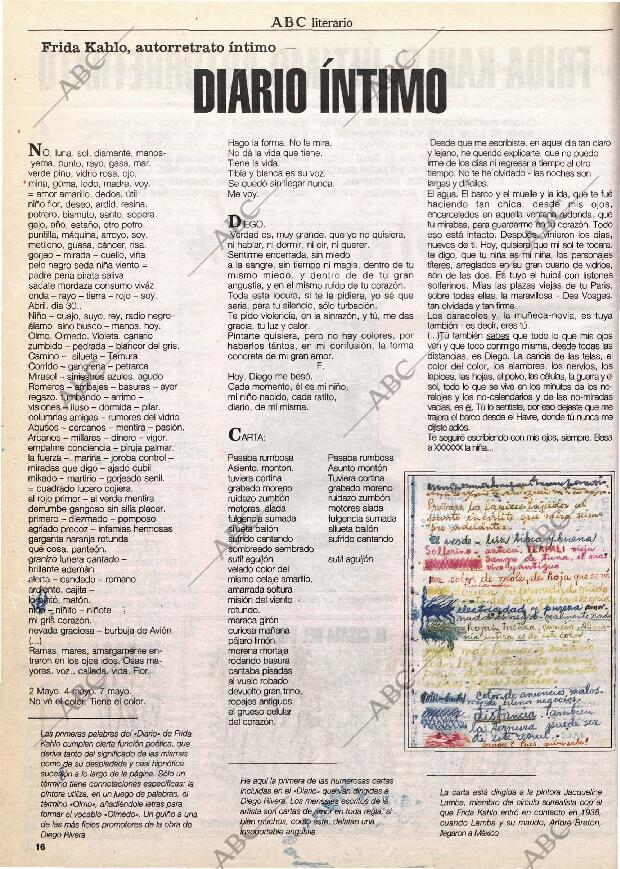 ABC literario
Frida Kahlo, autorretrato íntimo
DIARIO ÍNTIMO
NO, luna, sol, diamante, manos-
yema, punto, rayo, gasa, mar.
verde pino, vidrio rosa, ojo,
mina, goma, lodo, madre, voy.
= amor amarillo, dedos, útil
niño flor, deseo, ardid, resina.
potrero, bismuto, santo, sopera.
gajo, año, estaño, otro potro.
puntilla, máquina, arroyo, soy.
metileno, guasa, cáncer, risa.
gorjeo - mirada - cuello, viña
pelo negro seda niña viento =
padre pena pirata saliva
sacate mordaza consumo viváz
onda - rayo - tierra - rojo - soy.
Abril. día 30.
Niño - cuajo, suyo, rey, radio negro-
álamo sino busco - manos. hoy.
Olmo. Olmedo. Violeta. canario
zumbido - pedrada - blancor del gris.
Camino - silueta - Ternura
Corrido - gangrena - petrarca
Mirasol - siniestros azules. agudo
Romeros - ambajes - basuras - ayer
regazo. tumbando - arrimo -
visiones - iluso - dormida - pilar.
columnas amigas - rumores del vidrio.
Abusos - cercanos - mentira - pasión.
Arcanos - millares - dinero - vigor.
empalme conciencia - piruja palmar.
la fuerza - marina - joroba control -
miradas que digo - ajado cubil
mikado - martirio - gorjeado senil.
= cuadrado lucero cojiera,
al rojo primor - al verde mentira
derrumbe gangoso sin silla placer.
primero - diezmado - pomposo
agriado precoz - infamias hermosas
garganta naranja rotunda
qué cosa. panteón.
granizo lunera cantado -
brillante ademán
alerta - candado - romano
ardiente. cajita -
lo pinté, matón.
niño - niñito - niñote
mi gris corazón.
nevada graciosa - burbuja de Avión
(...)
Ramas, mares, amargamente en-
traron en los ojos idos. Osas ma-
yores. voz.. callada. vida. Flor.
2 Mayo. 4 mayo. 7 mayo.
No vé el color. Tiene el color.
Las primeras palabras del «Diario» de Frida
Kahlo cumplen cierta función poética, que
deriva tanto del significado de las mismas
como de su despiedada y casi hipnótica
sucesión a lo largo de la página. Sólo un
término tiene connotaciones específicas: la
pintora utiliza, en un juego de palabras, el
término «Olmo», añadiéndole letras para
formar el vocablo «Olmedo». Un guiño a una
de las más fieles promotores de la obra de
Diego Rivera
16
Hago la forma. No la mira.
No dá la vida que tiene.
Tiene la vida.
Tibia y blanca es su voz.
Se quedó sin llegar nunca.
Me voy.
DIEGO.
Verdad es, muy grande, que yo no quisiera,
ni hablar, ni dormir, ni oír, ni querer.
Sentirme encerrada, sin miedo
a la sangre, sin tiempo ni magia, dentro de tu
mismo miedo, y dentro de de tu gran
angustia, y en el mismo ruido de tu corazón.
Toda esta locura, si te la pidiera, yo sé que
sería, para tu silencio, sólo turbación.
Te pido violencia, en la sinrazón, y tú, me das
gracia, tu luz y calor.
Pintarte quisiera, pero no hay colores, por
haberlos tántos, en mi confusión, la forma
concreta de mi gran amor.
F.
Hoy, Diego me besó.
Cada momento, él es mi niño,
mi niño nacido, cada ratito,
diario, de mí misma.
CARTA:
Pasaba rumbosa
Asiento. monton.
tuviera cortina
grabado moreno
ruidazo zumbón
motores. alada
fulgencia sumada
silueta balón
sufrido cantando
sombreado sembrado
sutil agujón
velado color del
mismo celaje amarillo.
amarrada soltura
misión del viento
rotundo.
maraca girón
curiosa mañana
pájaro limón.
morena mortaja
rodando basura
cantaba pisadas
al vuelo robado
devuelto gran trino,
ropajes antiguos
el grueso celular
del corazón.
Pasaba rumbosa
Asunto montón
Tuviera cortina
Grabado moreno
ruidazo zumbón
motores alada
fulgencia sumada
silueta balón
sufrido cantando
sutil agujón
He aquí la primera de las numerosas cartas
incluidas en el «Diario» que van dirigidas a
Diego Rivera. Los mensajes escritos de la
artista son cartas de amor en toda regla, si
bien muchos, como este, delatan una
insoportable angustia.
Desde que me escribiste, en aquel día tan claro
y lejano, he querido explicarte, que no puedo
irme de los días ni regresar a tiempo al otro
tiempo. No te he olvidado - las noches son
largas y difíciles.
El agua. El barco y el muelle y la ida, que te fué
haciendo tan chica, desde mis ojos,
encarcelados en aquella ventana redonda, que
tu mirabas, para guardarme en tu corazón. Todo
eso está intacto. Después, vinieron los días,
nuevos de ti. Hoy, quisiera que mi sol te tocara.
te digo, que tu niña es mi niña, los personajes
títeres, arreglados en su gran cuarto de vidrios,
son de las dos. Es tuyo el huipil con listones
solferinos. Mías las plazas viejas de tu París,
sobre todas ellas, la maravillosa - Des Vosges,
tan olvidada y tan firme.
Los caracoles y la muñeca-novia, es tuya
también - es decir, eres tú.
(...)Tú también sabes que todo lo que mis ojos
ven y que toco conmigo misma, desde todas las
distancias, es Diego. La caricia de las telas, el
color del color, los alambres, los nervios, los
lápices, las hojas, el polvo, las células, la guerra y el
sol, todo lo que se vive en los minutos de los no-
relojes y los no-calendarios y de las no-miradas
vacías, es él. Tú lo sentiste, por eso dejaste que me
trajera el barco desde el Havre, donde tú nunca me
dijiste adiós.
Te seguiré escribiendo con mis ojos, siempre. Besa
a XXXXXX la niña...
Probaré los lapices tajados al
punto infinito que mira siem-
pre adelante:
El verde - luz tibia y buena
Solferino - azteca. TLAPALI vieja
Sangre de tuna, el más
vivo y antiguo
color de mole, de hoja que se va
electricidad y pureza amor.
nada es negro - realmente nada
Color de anuncios malos.
y de buenos negocios.
distancia. Tambien
la ternura puede ser
de este azul.
sangre? Pues, quien sabe!
La carta está dirigida a la pintora Jacqueline
Lamba, miembro del círculo surrealista con el
que Frida Kahlo entró en contacto en 1938,
cuando Lamba y su marido, André Breton,
llegaron a México